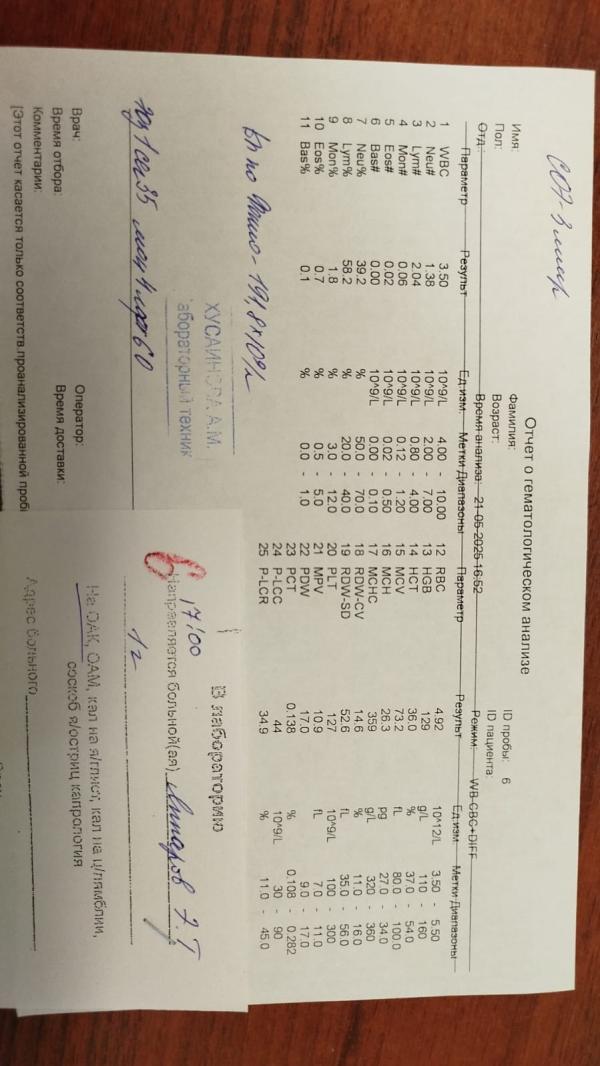 СОЭ-3 мм/ч
Отчет о гематологическом анализе
Имя: Фамилия: ID пробы: 6
Пол: Возраст: ID пациента:
Отд.: Время анализа: 21-05-2025 16:52 Режим: WB-CBC+DIFF
Параметр Результ Ед.изм. Метки Диапазоны Параметр Результ Ед.изм. Метки Диапазоны
1 WBC 3.50 10^9/L 4.00 - 10.00 12 RBC 4.92 10^12/L 3.50 - 5.50
2 Neu# 1.38 10^9/L 2.00 - 7.00 13 HGB 129 g/L 110 - 160
3 Lym# 2.04 10^9/L 0.80 - 4.00 14 HCT 36.0 % 37.0 - 54.0
4 Mon# 0.06 10^9/L 0.12 - 1.20 15 MCV 73.2 fL 80.0 - 100.0
5 Eos# 0.02 10^9/L 0.02 - 0.50 16 MCH 26.3 pg 27.0 - 34.0
6 Bas# 0.00 10^9/L 0.00 - 0.10 17 MCHC 359 g/L 320 - 360
7 Neu% 39.2 % 50.0 - 70.0 18 RDW-CV 14.6 % 11.0 - 16.0
8 Lym% 58.2 % 20.0 - 40.0 19 RDW-SD 52.6 fL 35.0 - 56.0
9 Mon% 1.8 % 3.0 - 12.0 20 PLT 127 10^9/L 100 - 300
10 Eos% 0.7 % 0.5 - 5.0 21 MPV 10.9 fL 7.0 - 11.0
11 Bas% 0.1 % 0.0 - 1.0 22 PDW 17.0 9.0 - 17.0
23 PCT 0.138 % 0.108 - 0.282
24 P-LCC 44 10^9/L 30 - 90
25 P-LCR 34.9 % 11.0 - 45.0
по Фонио - 191,8×10⁹/л
ХУСАИНОВА А.М.
лабораторный техник
1 35 4 60
Врач: Оператор:
Время отбора: Время доставки:
Комментарии:
[Этот отчет касается только соответств.проанализированной пробі
В лабораторию
17/00
Направляется больной(ая) Э.Т
1г
На ОАК, ОАМ, кал на я/глист, кал на ц/лямблии,
соскоб я/остриц капрология
Адрес больного